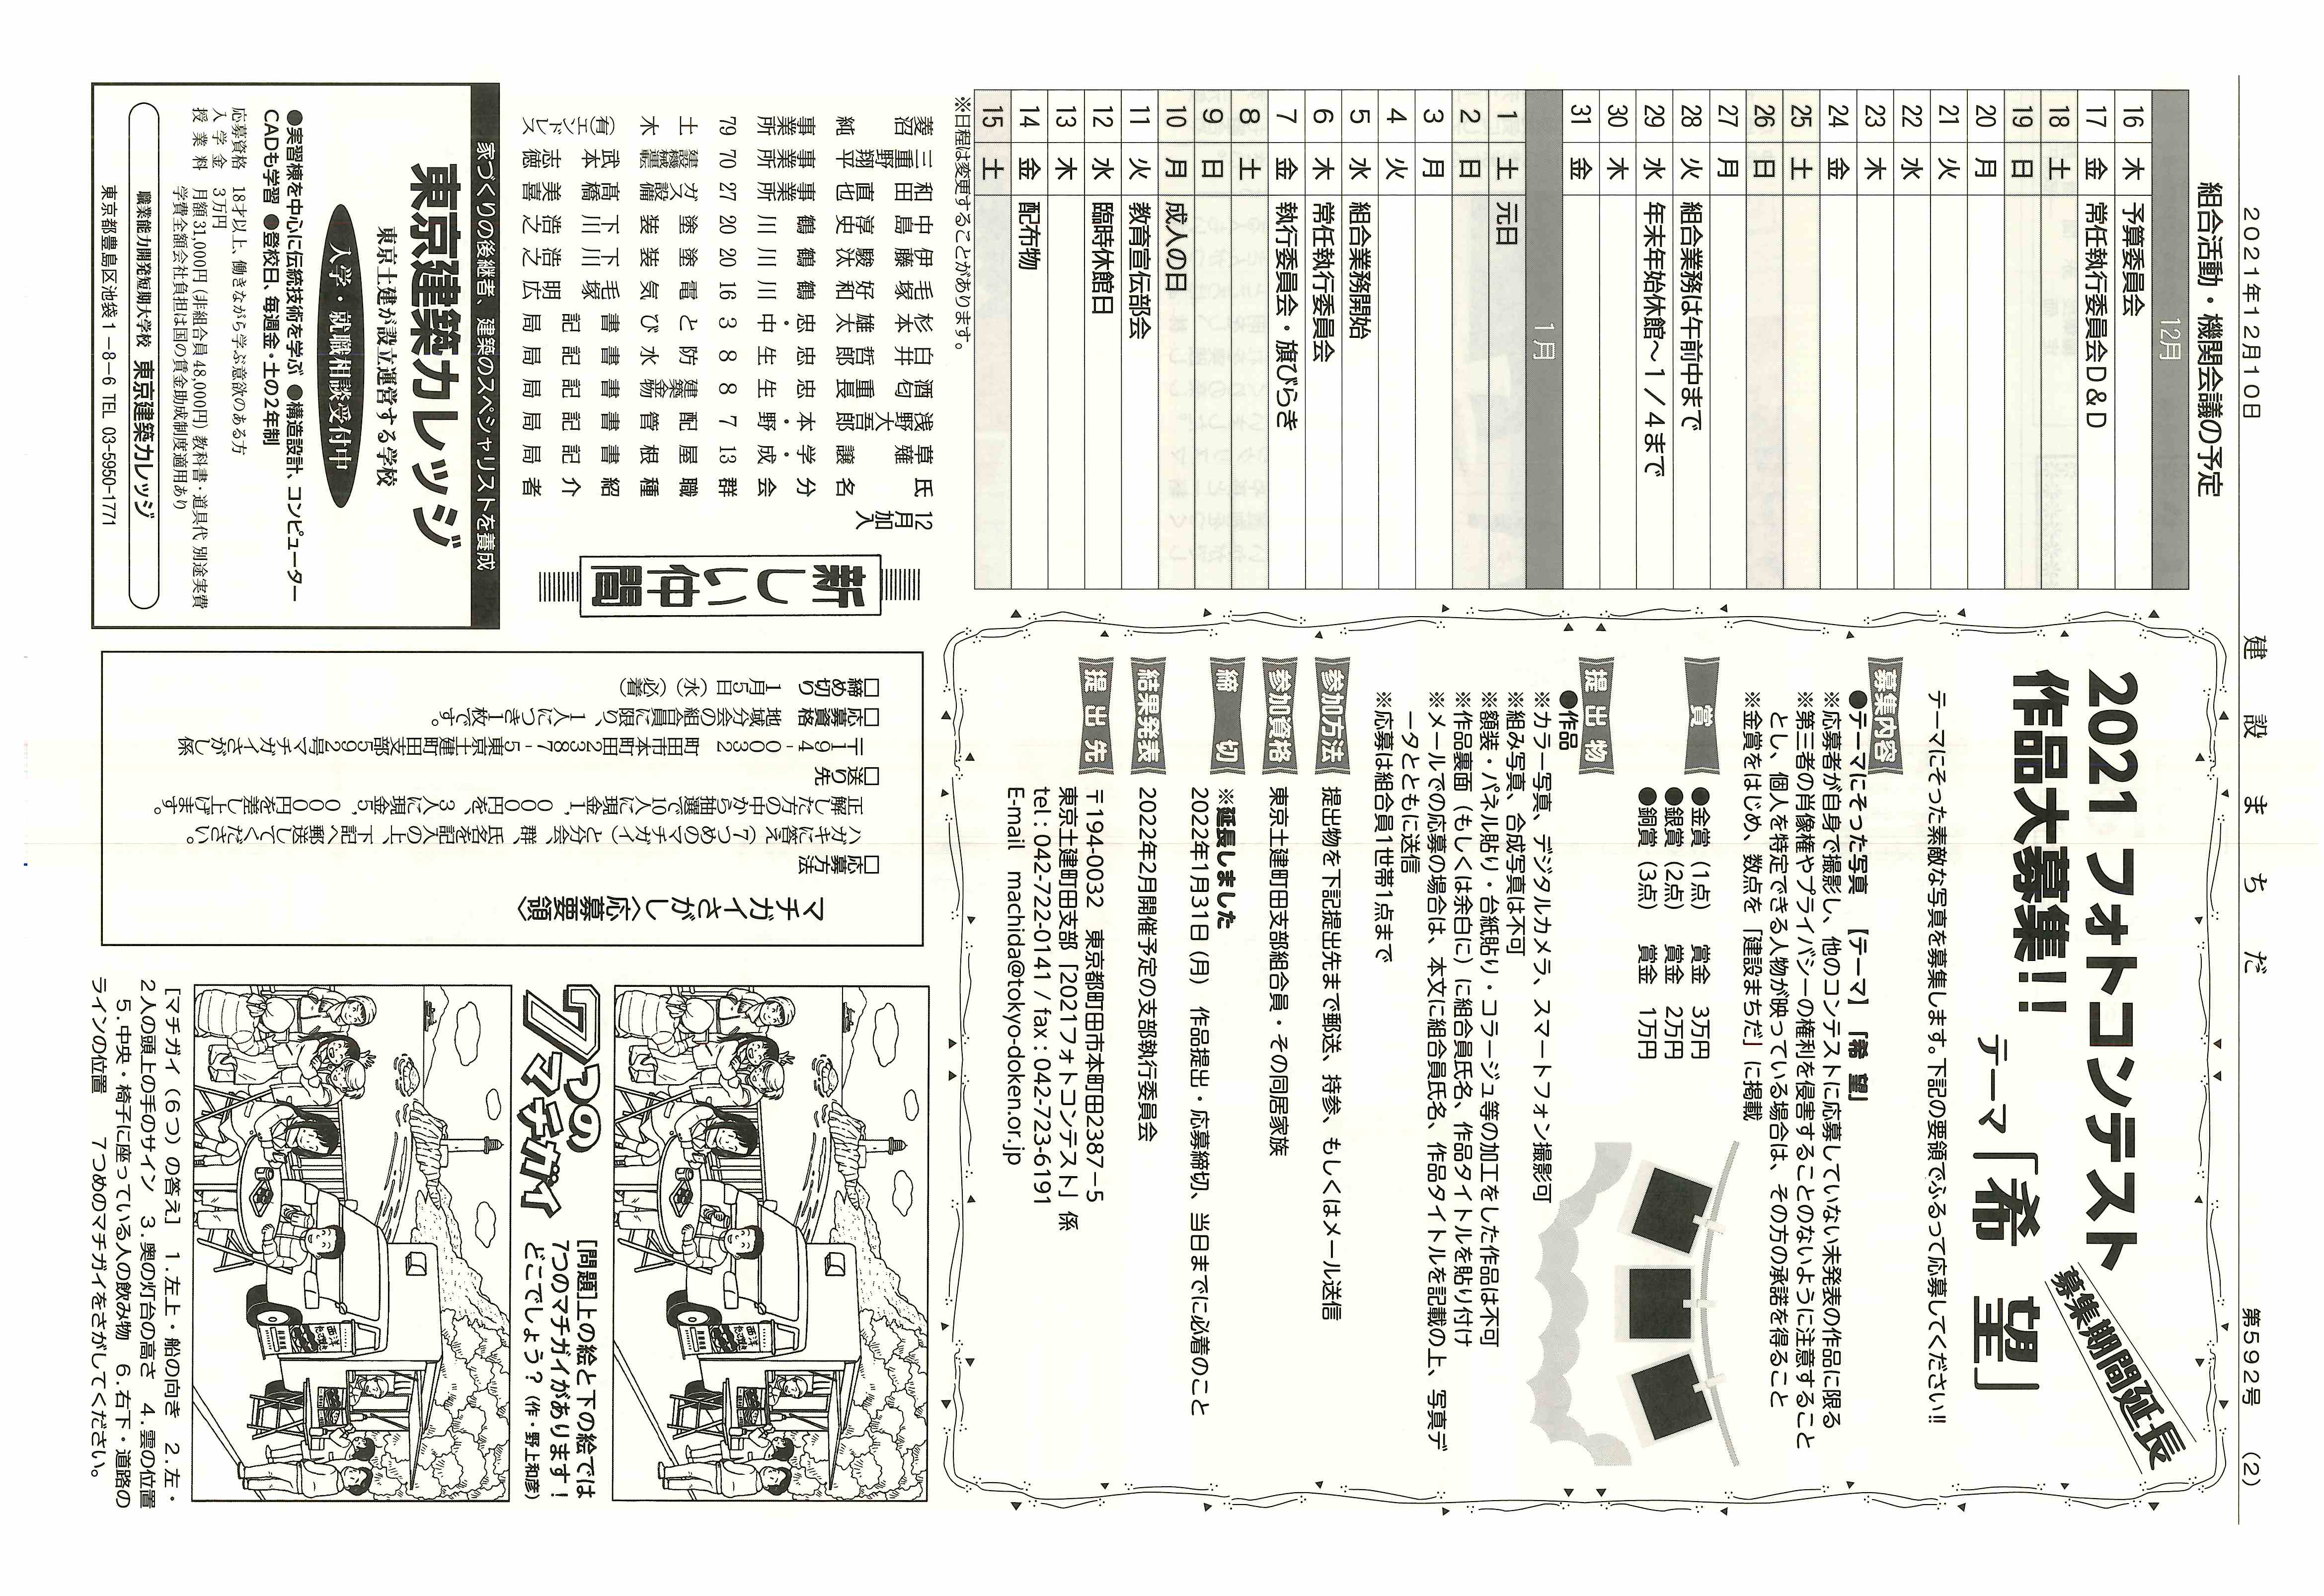 2021年12月10日
建設まちだ
第592号 (2)
組合活動・機関会議の予定
12月
16 木 予算委員会
17 金 常任執行委員会D&D
18 土
19 日
20 月
21 火
22 水
23 木
24 金
25 土
26 日
27 月
28 火 組合業務は午前中まで
29 水 年末年始休館～1／4まで
30 木
31 金
1月
1 土 元日
2 日
3 月
4 火
5 水 組合業務開始
6 木 常任執行委員会
7 金 執行委員会・旗びらき
8 土
9 日
10 月 成人の日
11 火 教育宣伝部会
12 水 臨時休館日
13 木
14 金 配布物
15 土
※日程は変更することがあります。
2021 フォトコンテスト
作品大募集!!
募集期間延長
テーマ「希 望」
テーマにそった素敵な写真を募集します。下記の要領でふるって応募してください!!
募集内容
●テーマにそった写真 【テーマ】「希 望」
※応募者が自身で撮影し、他のコンテストに応募していない未発表の作品に限る
※第三者の肖像権やプライバシーの権利を侵害することのないように注意すること
とし、個人を特定できる人物が映っている場合は、その方の承諾を得ること
※金賞をはじめ、数点を「建設まちだ」に掲載
賞
●金賞（1点） 賞金 3万円
●銀賞（2点） 賞金 2万円
●銅賞（3点） 賞金 1万円
提出物
●作品
※カラー写真、デジタルカメラ、スマートフォン撮影可
※組み写真、合成写真は不可
※額装・パネル貼り・台紙貼り・コラージュ等の加工をした作品は不可
※作品裏面（もしくは余白に）に組合員氏名、作品タイトルを貼り付け
※メールでの応募の場合は、本文に組合員氏名、作品タイトルを記載の上、写真デ
ータとともに送信
※応募は組合員1世帯1点まで
参加方法
提出物を下記提出先まで郵送、持参、もしくはメール送信
参加資格
東京土建町田支部組合員・その同居家族
締切
※延長しました
2022年1月31日（月） 作品提出・応募締切、当日までに必着のこと
結果発表
2022年2月開催予定の支部執行委員会
提出先
〒194-0032 東京都町田市本町田2387－5
東京土建町田支部「2021フォトコンテスト」係
tel：042-722-0141 / fax：042-723-6191
E-mail machida@tokyo-doken.or.jp
新しい仲間
12月加入
氏名 分会 群 職種 紹介者
草薙 譲 学・成 13 屋根 書記局
浅野 大吾郎 本・野 7 配管 書記局
酒匂 重長 忠生 8 建築金物 書記局
白井 哲郎 忠生 8 防水 書記局
杉本 雄太 忠・中 3 とび 書記局
毛塚 好和 鶴川 16 電気 毛塚明広
伊藤 駿汰 鶴川 20 塗装 下川浩之
中島 淳史 鶴川 20 塗装 下川浩之
和田 直也 事業所 27 ガス設備 高橋美喜
三重野 翔平 事業所 70 建設機運 武本志徳
菱沼 純 事業所 79 土木 (有)エンドレス
家づくりの後継者、建築のスペシャリストを養成
東京建築カレッジ
東京土建が設立運営する学校
入学・就職相談受付中
●実習棟を中心に伝統技術を学ぶ ●構造設計、コンピューター
CADも学習 ●登校日、毎週金・土の2年制
応募資格 18才以上、働きながら学ぶ意欲のある方
入学金 3万円
授業料 月額31,000円（非組合員48,000円）教科書・道具代 別途実費
学費全額会社負担は国の賃金助成制度適用あり
職業能力開発短期大学校 東京建築カレッジ
東京都豊島区池袋1－8－6 TEL 03-5950-1771
マチガイさがし〈応募要領〉
□応募方法
ハガキに答え（7つめのマチガイ）と分会、群、氏名を記入の上、下記へ郵送してください。
正解した方の中から抽選で10人に現金1，000円を、3人に現金5，000円を差し上げます。
□送り先
〒194-0032 町田市本町田2387-5 東京土建町田支部592号マチガイさがし係
□応募資格 地域分会の組合員に限り、1人につき1枚です。
□締め切り 1月5日（水）（必着）
7つのマチガイ
[問題]上の絵と下の絵では
7つのマチガイがあります！
どこでしょう？（作・野上和彦）
[マチガイ（6つ）の答え] 1.左上・船の向き 2.左・
2人の頭上の手のサイン 3.奥の灯台の高さ 4.雲の位置
5.中央・椅子に座っている人の飲み物 6.右下・道路の
ラインの位置 7つめのマチガイをさがしてください。